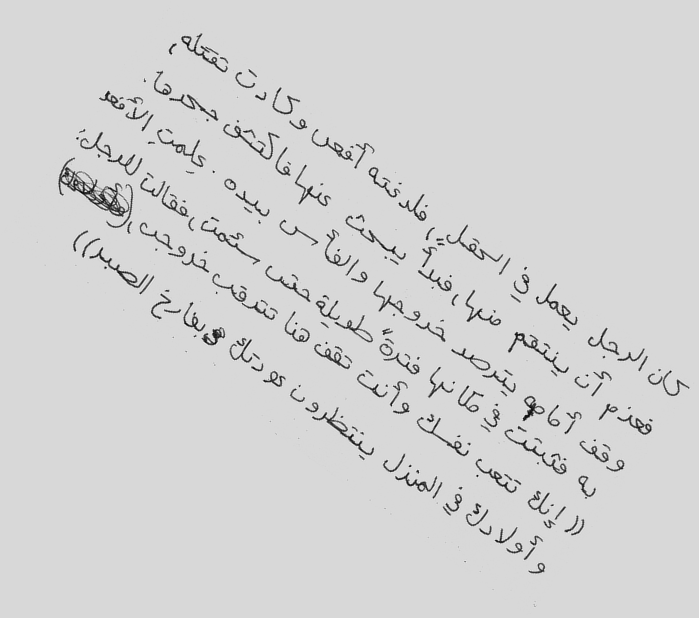 كان الرجل يعمل في الحقل، فلدغته أفعى وكادت تقتله،
فعزم أن ينتقم منها، فبدأ يبحث عنها فاكتشف جحرها.
وقف أمامه يترصد خروجها والفأس بيده. علمتِ الأفعى
به فثبتت في مكانها فترةً طويلة حتى سئمت، فقالت للرجل:
((إنك تتعب نفسك وأنت تقف هنا تترقب خروجي،
وأولادك في المنزل ينتظرون عودتك بفارغ الصبر))